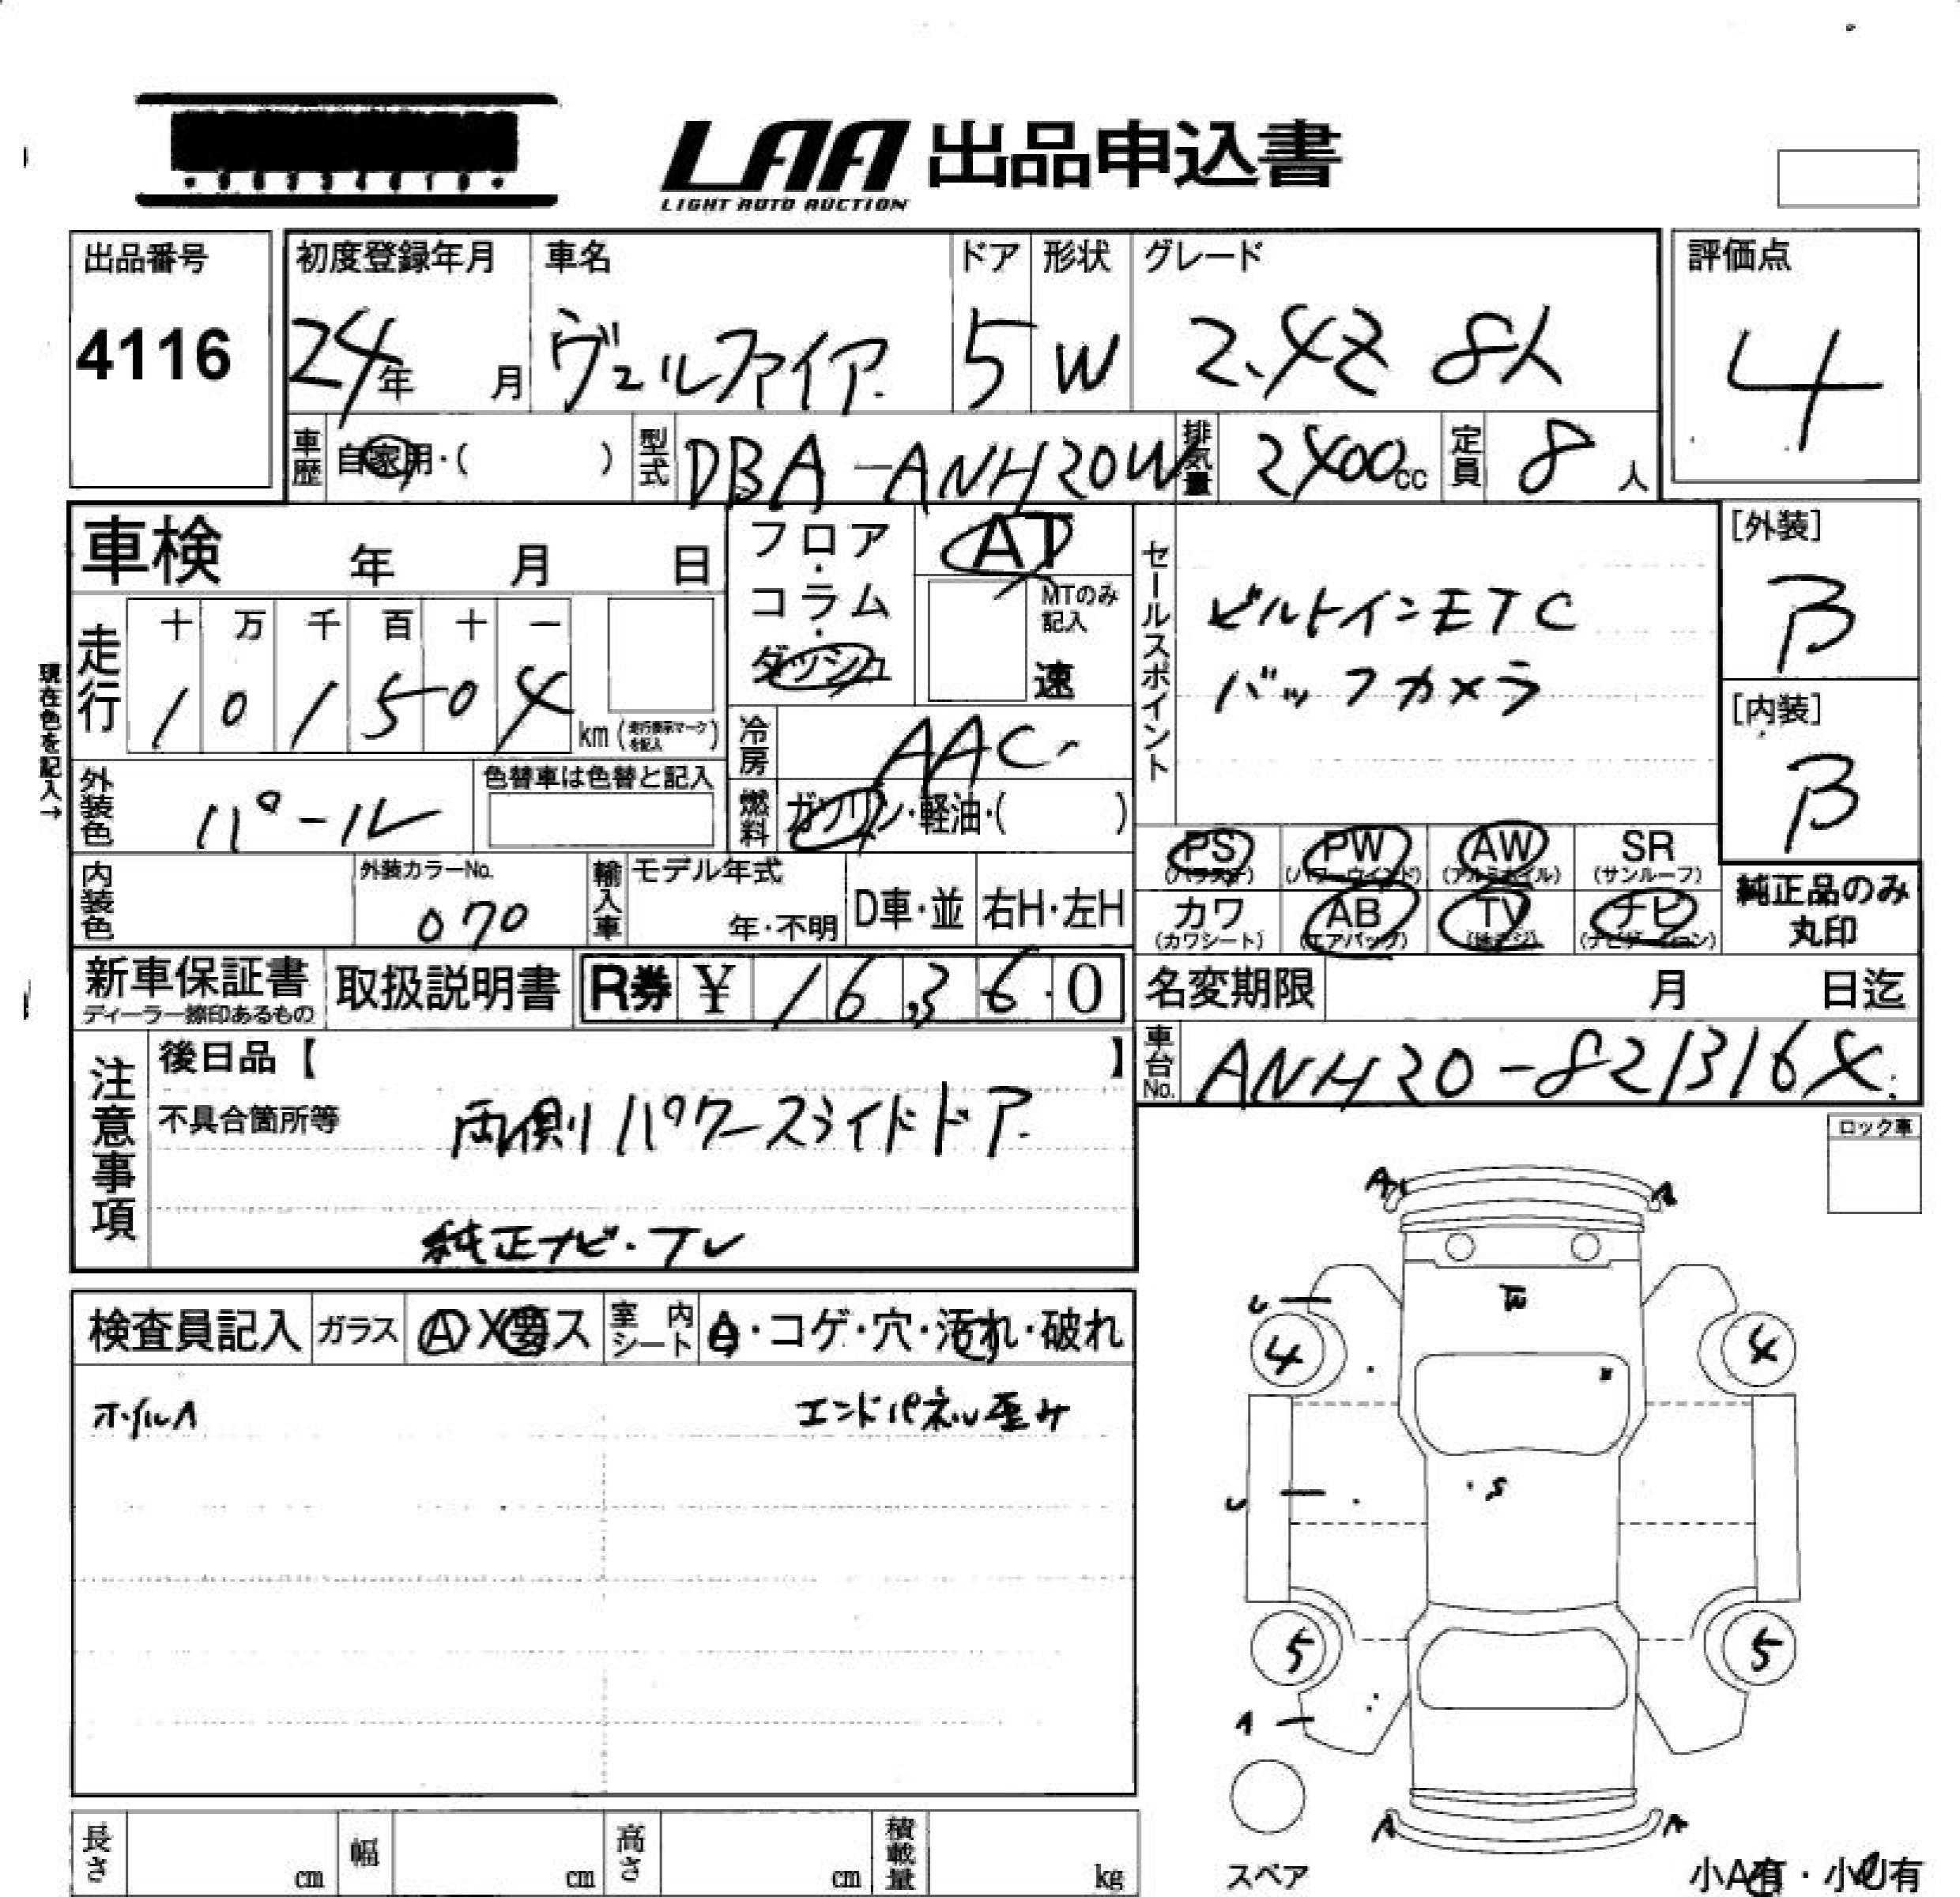 LAA 出品申込書
LIGHT AUTO AUCTION
出品番号 初度登録年月 車名 ドア 形状 グレード 評価点
4116 24年 月 ヴェルファイア 5 W 2.4Z 8人 4
車歴 自家用・( ) 型式 DBA-ANH20W 排気量 2400cc 定員 8人
車検 年 月 日 フロア・コラム・ダッシュ AT MTのみ記入 速
セールスポイント
ビルトインETC
バックカメラ
[外装]
B
[内装]
B
現在色を記入→
走行 十 万 千 百 十 一
1 0 1 5 0 4 km (走行表示マークを記入)
冷房 AAC
外装色 パール 色替車は色替と記入
燃料 ガソリン・軽油・( )
PS (パワステ) PW (パワーウインド) AW (アルミホイル) SR (サンルーフ)
カワ (カワシート) AB (エアバッグ) TV (地デジ) ナビ (ナビゲーション)
純正品のみ
丸印
内装色 外装カラーNo. 070 輸入車 モデル年式 年・不明 D車・並 右H・左H
新車保証書 ディーラー捺印あるもの 取扱説明書 R券 ¥ 16,360
名変期限 月 日迄
車台No. ANH20-821316X
注意事項
後日品【 】
不具合箇所等 両側パワースライドドア
純正ナビ・TV
ロック車
検査員記入 ガラス A X 要 ス 室内シート ・コゲ・穴・汚れ・破れ
ホイルA エンドパネル歪み
A
U
4 4
U S
5 5
A
A A
スペア
小A有・小U有
長さ cm 幅 cm 高さ cm 積載量 kg